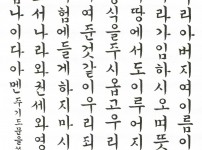 리아버지여이름이
라가임하시오며뜻
땅에서도이루어지
식을주시옵고우리
여준것같이우리죄
험에들게하지마시
서나라와권세와영
이다아멘 주기도문을